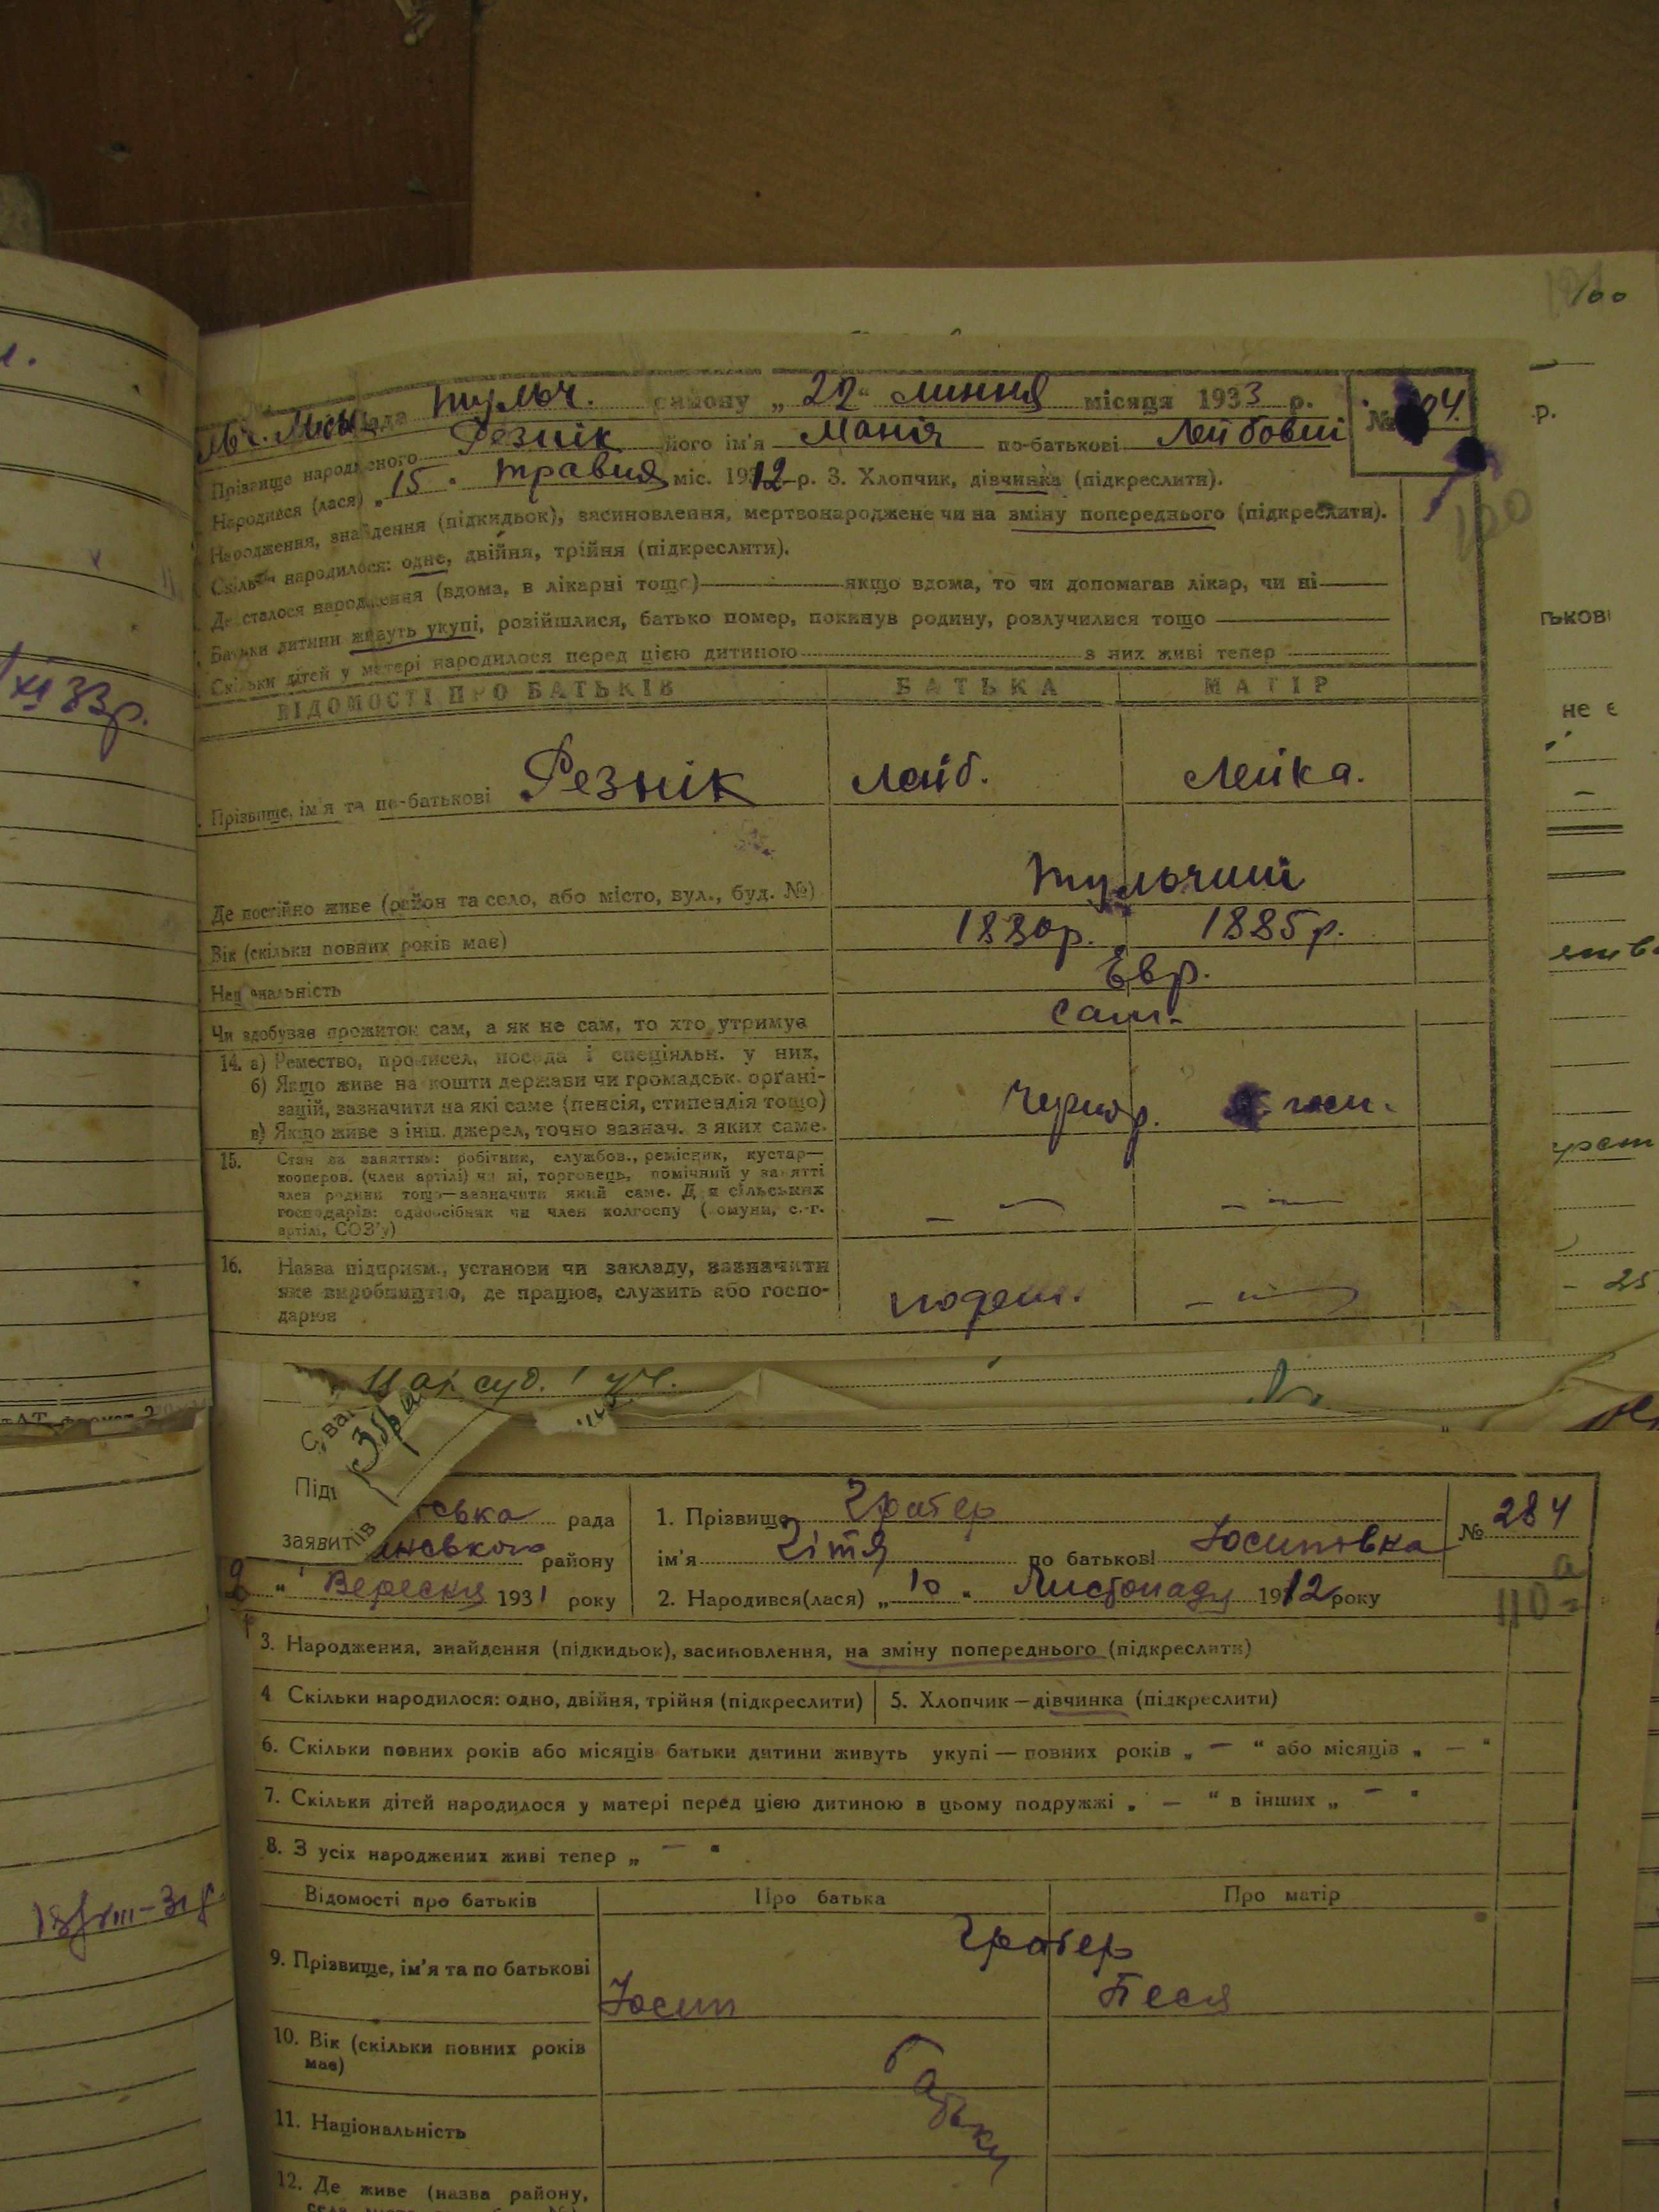 100
рада Тульч. району „22" липня місяця 1933 р.
№ 04.
Прізвище народженого Резнік його ім'я Манія по-батькові Лейбовні
Народився (лася) „15" травня міс. 1912 р. 3. Хлопчик, дівчинка (підкреслити).
Народження, знайдення (підкидьок), засиновлення, мертвонароджене чи на зміну попереднього (підкреслити).
Скільки народилося: одне, двійня, трійня (підкреслити).
Де сталося народження (вдома, в лікарні тощо) — якщо вдома, то чи допомагав лікар, чи ні —
Батьки дитини живуть укупі, розійшлися, батько помер, покинув родину, розлучилися тощо —
Скільки дітей у матері народилося перед цією дитиною з них живі тепер
ВІДОМОСТІ ПРО БАТЬКІВ БАТЬКА МАТІР
Прізвище, ім'я та по-батькові Резнік Лейб. Лейка.
Де постійно живе (район та село, або місто, вул., буд. №) Тульчині
Вік (скільки повних років має) 1880р. 1885р.
Національність Євр.
Чи здобуває прожиток сам, а як не сам, то хто утримує сам.
14. а) Ремество, промисел, посада і спеціяльн. у них,
б) Якщо живе на кошти держави чи громадськ. орґані-
зацій, зазначити на які саме (пенсія, стипендія тощо)
в) Якщо живе з інш. джерел, точно зазнач. з яких саме.
Чернор. гос.
15. Стан за заняттям: робітник, службов., ремісник, кустар—
кооперов. (член артілі) чи ні, торговець, помічний у занятті
член родини тощо—зазначити який саме. Для сільських
господарів: одноосібник чи член колгоспу (комуни, с.-г.
артілі, СОЗ'у)
16. Назва підприєм., установи чи закладу, зазначити
яке виробництво, де працює, служить або госпо-
дарює
поден.
ХІ 33р.
Нар суд. 1 уч.
Підп
заявитлів
рада
району
Вересня 1931 року
1. Прізвище Гратер
ім'я Зітя по батькові Йосиповна
2. Народився(лася) „10" Листопаду 1912 року
№ 284
а
110
3. Народження, знайдення (підкидьок), засиновлення, на зміну попереднього (підкреслити)
4 Скільки народилося: одно, двійня, трійня (підкреслити) 5. Хлопчик — дівчинка (підкреслити)
6. Скільки повних років або місяців батьки дитини живуть укупі — повних років „ — " або місяців „ — "
7. Скільки дітей народилося у матері перед цією дитиною в цьому подружжі „ — " в інших „ — "
8. З усіх народжених живі тепер „ — "
Відомості про батьків Про батька Про матір
Гратер
9. Прізвище, ім'я та по батькові Йосип Песя
10. Вік (скільки повних років
має)
11. Національність
12. Де живе (назва району,